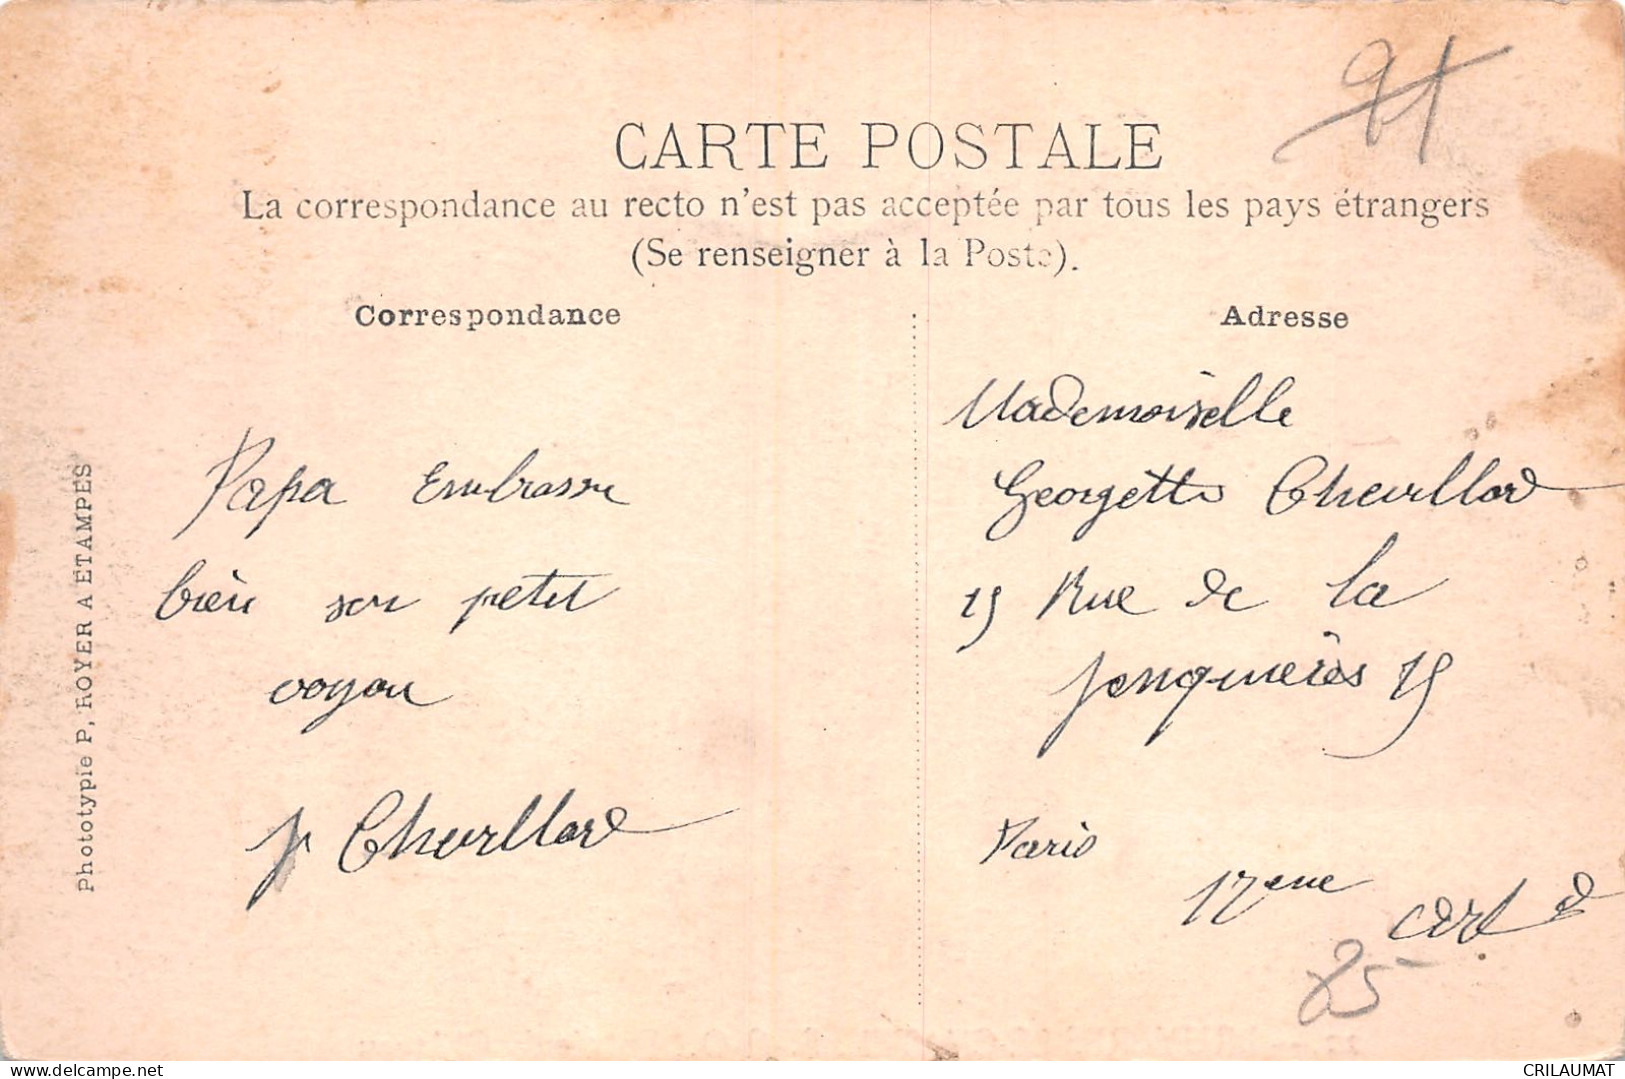 91
CARTE POSTALE
La correspondance au recto n'est pas acceptée par tous les pays étrangers
(Se renseigner à la Poste).
Correspondance
Papa Embrasse
bien son petit
voyou
J Cheurllard
Adresse
Mademoiselle
Georgette Cheurllard
15 Rue de la
Jonquières 15
Paris
17eme
85
Phototypie P. ROYER A ETAMPES
CRILAUMAT